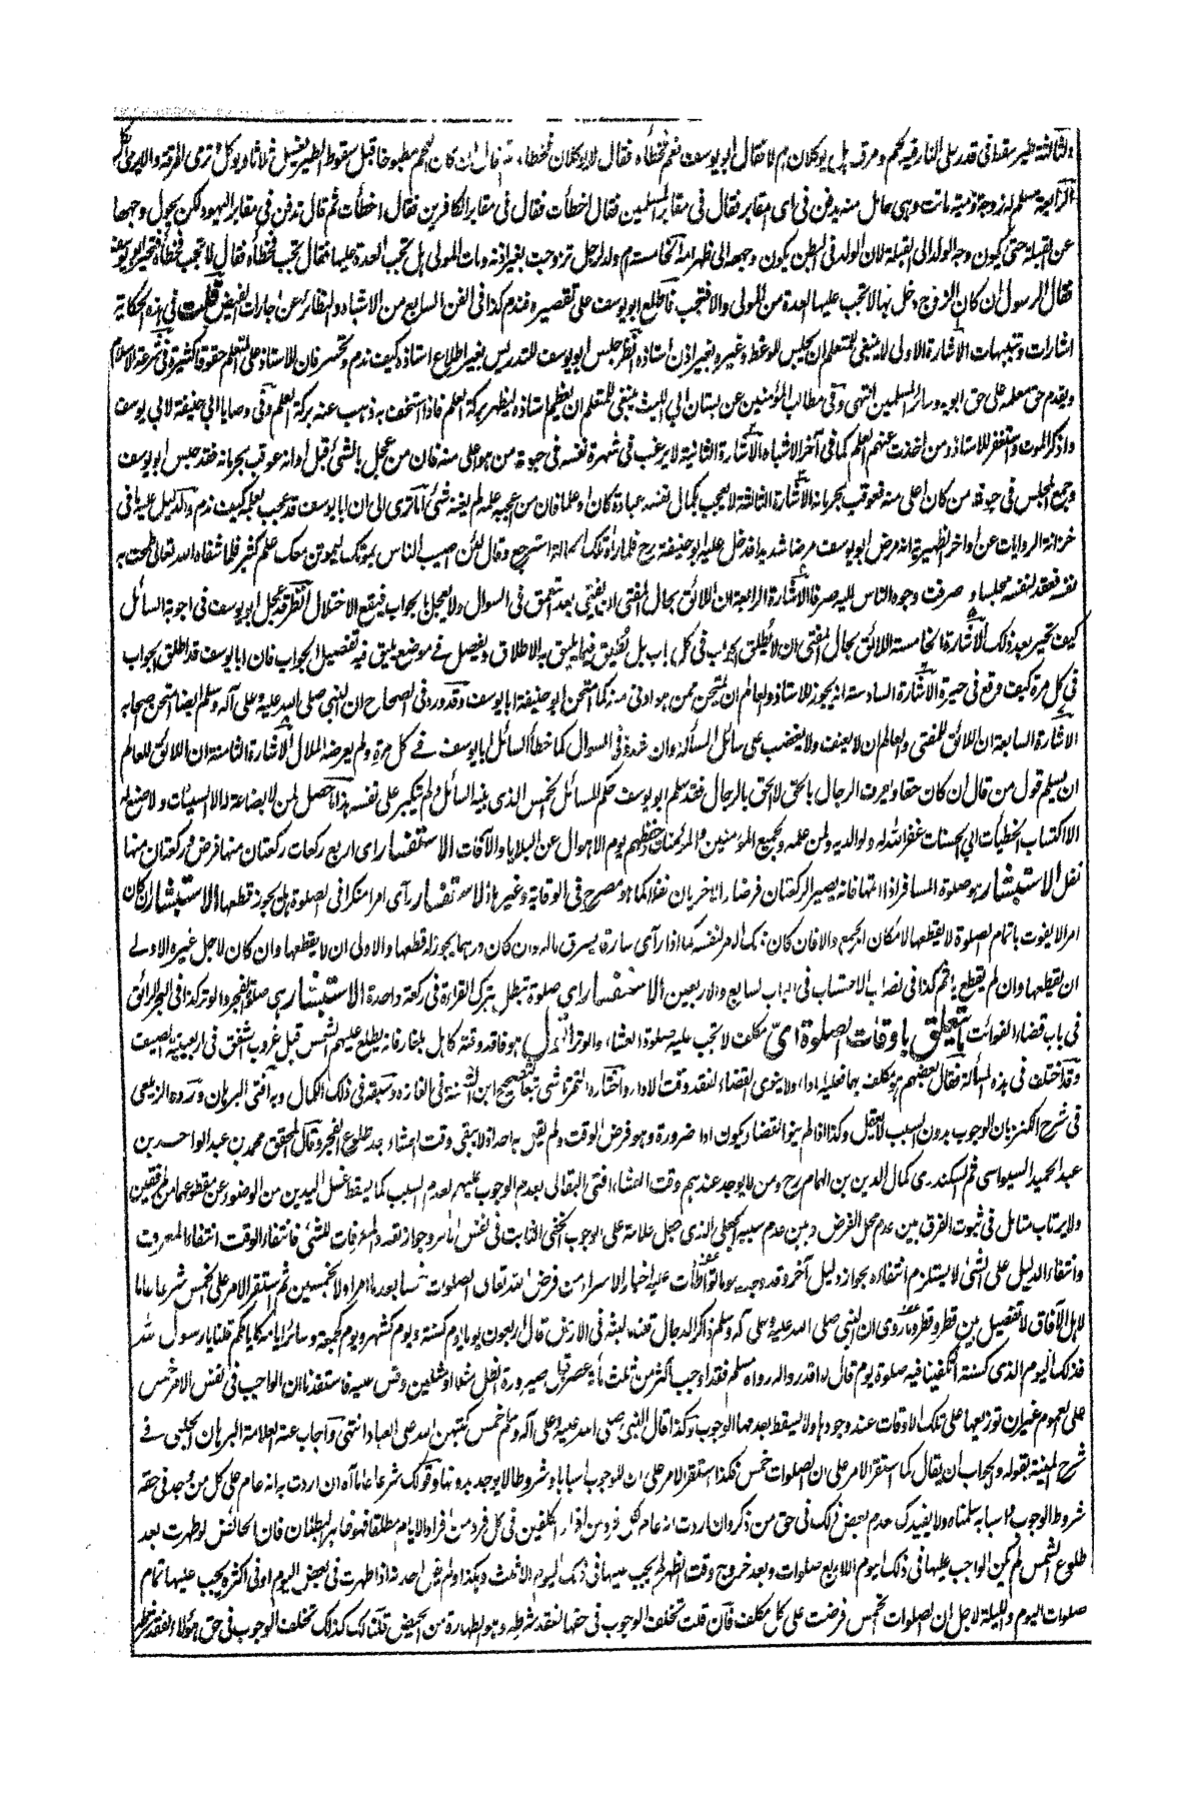 الثالثة طير سقط في قدر على النار فيه لحم ومرق هل يؤكلان ام لا فقال ابو يوسف نعم فخطأه فقال لا يؤكلان فخطأه ثم قال ان كان اللحم مطبوخا قبل سقوط الطير يغسل ثلاثا ويوكل وترمى المرقة والا يرمى الكل
الرابعة مسلم له زوجة ذمية ماتت وهي حامل منه يدفن في اي المقابر فقال في مقابر المسلمين فقال اخطأت فقال في مقابر الكافرين فقال اخطأت ثم قال تدفن في مقابر اليهود ولكن يحول وجهها
عن القبلة حتى يكون وجه الولد الى القبلة لان الولد في البطن يكون وجهه الى ظهر امه الخامسة ام ولد لرجل تزوجت بغير اذنه ومات المولى هل تجب العدة عليها فقال تجب فخطأه فقال لا تجب فخطأه فتحير ابو يوسف
فقال الرسول ان كان الزوج دخل بها لا تجب عليها العدة من المولى والا فتجب فاطلع ابو يوسف على تقصيره فندم كذا في الفن السابع من الاشباه والنظائر عن اجارات الفيض قلت في هذه الحكاية
اشارات وتنبيهات الاشارة الاولى لا ينبغي للمتعلم ان يجلس للوعظ وغيره بغير اذن استاذه انظر جلس ابو يوسف للتدريس بغير اطلاع استاذه كيف ندم وتحسر فان للاستاذ على المتعلم حقوقا كثيرة وفي شرعة الاسلام
ويقدم حق معلمه على حق ابويه وسائر المسلمين انتهى وفي مطالب المؤمنين عن بستان ابي الليث ينبغي للمتعلم ان يعظم استاذه ليظهر بركة العلم فاذا استخف به ذهب عنه بركة العلم وفي وصايا ابي حنيفة لابي يوسف
واذكر الموت واستغفر للاستاذ ومن اخذت عنهم العلم كما في آخر الاشباه الاشارة الثانية لا يرغب في شهرة نفسه في حيوة من هو اعلى منه فان من عجل بالشئ قبل اوانه عوقب بحرمانه فقد جلس ابو يوسف
وجمع المجلس في حيوة من كان اعلى منه فعوقب بحرمانه الاشارة الثالثة لا يعجب بكمال نفسه عبادة كان او علما فان من اعجبه علمه لم يغنه شئ اما ترى الى ان ابا يوسف قد عجب بعلمه كيف ندم والدليل عليه ما في
خزانة الروايات عن اواخر الظهيرية انه مرض ابو يوسف مرضا شديدا فدخل عليه ابو حنيفة رح فلما راه تلك الحالة استرجع وقال لئن اصيب الناس بموتك ليموتن معك علم كثير فلما شفاه الله تعالى طمحت به
نفسه فعقد لنفسه مجلسا و صرفت وجوه الناس اليه صرفا الاشارة الرابعة ان اللائق بحال المفتي ان يفتي بعد التعمق في السوال ولا يعجل بالجواب فيقع الاختلال انظر قد عجل ابو يوسف في اجوبة السائل
كيف تحير بعد ذلك الاشارة الخامسة اللائق بحال المفتي ان لا يطلق الجواب في كل باب بل يطلق فيما يليق به الاطلاق ويفصل في موضع يليق فيه تفصيل الجواب فان ابا يوسف قد اطلق الجواب
في كل مرة كيف وقع في حيرة الاشارة السادسة انه يجوز للاستاذ والعالم ان يمتحن ممن هو ادنى منه كما امتحن ابو حنيفة ابا يوسف وقد ورد في الصحاح ان النبي صلى الله عليه وعلى آله وسلم ايضا امتحن صحابه
الاشارة السابعة ان اللائق للمفتي والعالم ان لا يعنف ولا يغضب على سائل المسألة وان شدد في السوال كما خطأ السائل ابا يوسف في كل مرة ولم يعرضه الملال الاشارة الثامنة ان اللائق للعالم
ان يسلم قول من قال ان كان حقا ويعرف الرجال بالحق لا الحق بالرجال فقد سلم ابو يوسف حكم المسائل الخمس الذي بينه السائل ولم يتكبر على نفسه هذا ما حصل لمن لا بضاعة له الا السيئات ولا صنع له
الا اكتساب الخطيات الى الحسنات غفر الله له ولوالديه ولمن علمه ولجميع المؤمنين والمؤمنات وحفظهم يوم الاهوال عن البلايا والآفات الاستفسار اي اربع ركعات ركعتان منها فرض وركعتان منها
نفل الاستبشار هو صلوة المسافر اذا اتمها فانه يصير الركعتان فرضا والاخريان نفلا كما هو مصرح في الوقاية وغيرها الاستفسار رأى امرا منكرا في الصلوة هل يجوز قطعها الاستبشار ان كان
امرا لا يفوت باتمام الصلوة لا يقطعها لامكان الجمع والا فان كان ذلك الامر لنفسه كما اذا رأى سارقا يسرق ماله وان كان درهما يجوز له قطعها والاولى ان لا يقطعها وان كان لاجل غيره الاولى
ان يقطعها وان لم يقطع ياثم كذا في نصاب الاحتساب في الباب السابع والاربعين الاستفسار اي صلوة تبطل بترك القراءة في ركعة واحدة الاستبشار هي صلوة الفجر والوتر كذا في البحر الرائق
في باب قضاء الفوائت ما يتعلق باوقات الصلوة اي مكلف لا تجب عليه صلوة العشاء والوتر اقول هو فاقد وقته كاهل بلغار فانه يطلع عليهم الشمس قبل غروب الشفق في اربعينية الصيف
وقد اختلف في هذه المسألة فقال بعضهم هو مكلف بهما فعليه اداء ولا ينوي القضاء لفقد وقت الاداء واختاره التمرتاشي تبعا لتصحيح ابن الشحنة في الغازه وسبقه في ذلك الكمال وبه افتى البرهان ورده الزيلعي
في شرح الكنز بان الوجوب بدون السبب لا يعقل وكذا اذا لم ينو القضاء يكون اداء ضرورة وهو فرض الوقت ولم يقل به احد اذ لا يبقى وقت العشاء بعد طلوع الفجر وقال المحقق محمد بن عبد الواحد بن
عبد الحميد السيواسي ثم السكندري كمال الدين بن الهمام رح ومن لا يوجد عندهم وقت العشاء افتى البقالي بعدم الوجوب عليهم لعدم السبب كما يسقط غسل اليدين من الوضوء عن مقطوعهما من المرفقين
ولا يرتاب متامل في ثبوت الفرق بين عدم محل الفرض وبين عدم سببه الجعلي الذي جعل علامة على الوجوب الخفي الثابت في نفس الامر وجواز تعدد المعرفات للشئ فانتفاء الوقت انتفاء المعرف
وانتفاء الدليل على الشئ لا يستلزم انتفاءه لجواز دليل آخر وقد وجد وهو ما تواطأت عليه اخبار الاسراء من فرض الله تعالى الصلوت خمسا بعد ما امر اولا بخمسين ثم استقر الامر على الخمس شرعا عاما
لاهل الآفاق لا تفصيل بين قطر وقطر وما روى ان النبي صلى الله عليه وعلى آله وسلم ذكر الدجال قلنا ما لبثه في الارض قال اربعون يوما يوم كسنة ويوم كشهر ويوم كجمعة وسائر ايامه كايامكم قلنا يا رسول الله
فذلك اليوم الذي كسنة اتكفينا فيه صلوة يوم قال لا اقدروا له رواه مسلم فقد اوجب اكثر من ثلث مأة عصر قبل صيرورة الظل مثلا او مثلين وقس عليه فاستفدنا ان الواجب في نفس الامر خمس
على العموم غير ان توزيعها على تلك الاوقات عند وجودها ولا يسقط بعدمها الوجوب وكذا قال النبي صلى الله عليه وعلى آله وسلم خمس كتبهن الله على العباد انتهى واجاب عنه العلامة البرهان الحلبي في
شرح المنية بقوله والجواب ان يقال كما استقر الامر على ان الصلوات خمس فكذا استقر الامر على ان للوجوب اسبابا وشروطا لا يوجد بدونها وقولك شرعا عاما آه ان اردت به انه عام على كل من وجد في حقه
شروط الوجوب واسبابه سلمناه ولا يفيدك عدم بعض ذلك في حق من ذكر وان اردت انه عام لكل فرد من افراد المكلفين في كل فرد من افراد الايام مطلقا فهو ظاهر البطلان فان الحائض لو طهرت بعد
طلوع الشمس لم يكن الواجب عليها في ذلك اليوم الا اربع صلوات وبعد خروج وقت الظهر لم يجب عليها في ذلك اليوم الا ثلث وهكذا ولم يقل احد انه اذا طهرت في بعض اليوم او في اكثره يجب عليها تمام
صلوات اليوم والليلة لاجل ان الصلوات الخمس فرضت على كل مكلف فان قلت تخلف الوجوب في حقها لفقد شرطه وهو الطهارة من الحيض قلنا لك كذلك تخلف الوجوب في حق هؤلاء لفقد شرطه